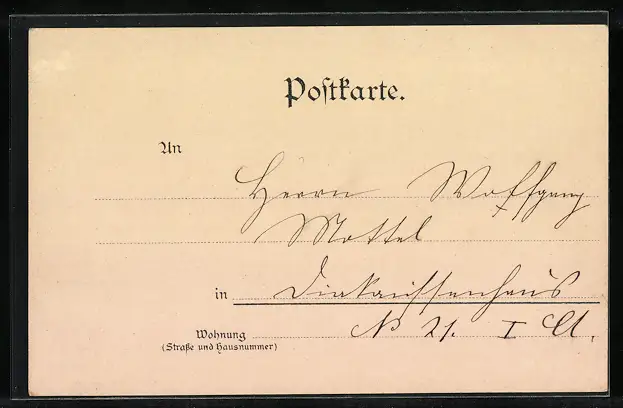 Postkarte.
An
Herrn Wolfgang
Mottel
in Diakonissenhaus
Wohnung No 21. I Cl.
(Straße und Hausnummer)